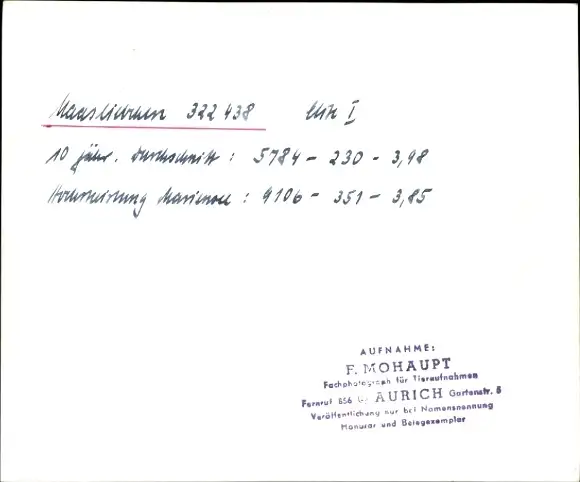 Maasliebchen 322438 Elite I
10 jähr. Durchschnitt : 5784 - 230 - 3,98
Höchstleistung : 9106 - 351 - 3,85
AUFNAHME:
F. MOHAUPT
Fachphotograph für Tieraufnahmen
Fernruf 856 AURICH Gartenstr. 5
Veröffentlichung nur bei Namensnennung
Honorar und Belegexemplar